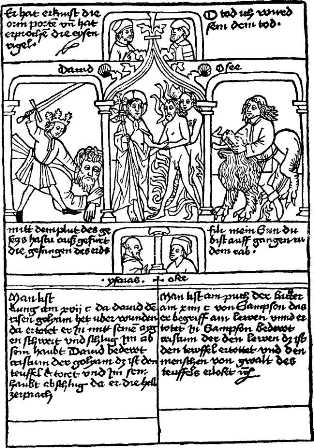 Er hat erknist die
orin porte vn hat
erproche die eisen
rigel.
O tod ich wurd
sein dein tod.
Dauid
Osee
mitt dem plut des ge
hastu auß gefürt
die gefangen des
für mein Sun du
bist auff gangen zu
dem rab.
ysaias
osee
Man list
kunig am xvij c da dauid de
risen goliam het vber wunden
da ertotet er jn mit seine aige
en schwert und schlug jm ab
sein haubt Dauid bedewt
cristum der goliam dz ist den
teuffel ertott und jm sein
haubt abschlug da er die hell
zerprach
Man list am puch der
am xiiij c von Sampson das
er begreff ain lewen vnd er
totet jn Sampson bedewt
cristum der den lewen dz ist
den teuffel ertottet vnd den
menschen von gwalt des
teuffels erlost